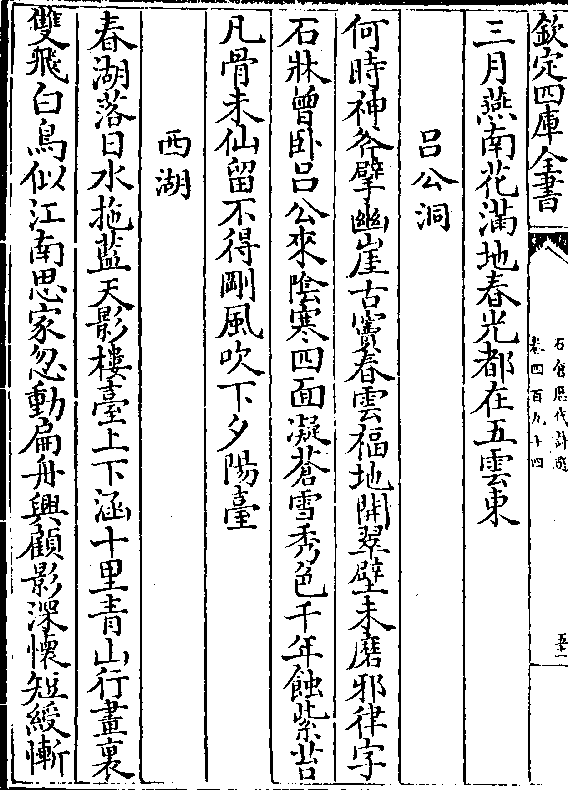 欽定四庫全書
石倉歷代詩選
卷四百九十四
三月燕南花滿地春光都在五雲東
呂公洞
何時神斧擘幽崖古竇春雲福地開翠壁未磨邪律字
石牀曾卧呂公來陰寒四面凝蒼雪秀色千年蝕紫苔
凡骨未仙留不得剛風吹下夕陽臺
西湖
春湖落日水拖藍天影樓臺上下涵十里青山行畫裏
雙飛白鳥似江南思家忽動扁舟興顧影深懷短綬慚